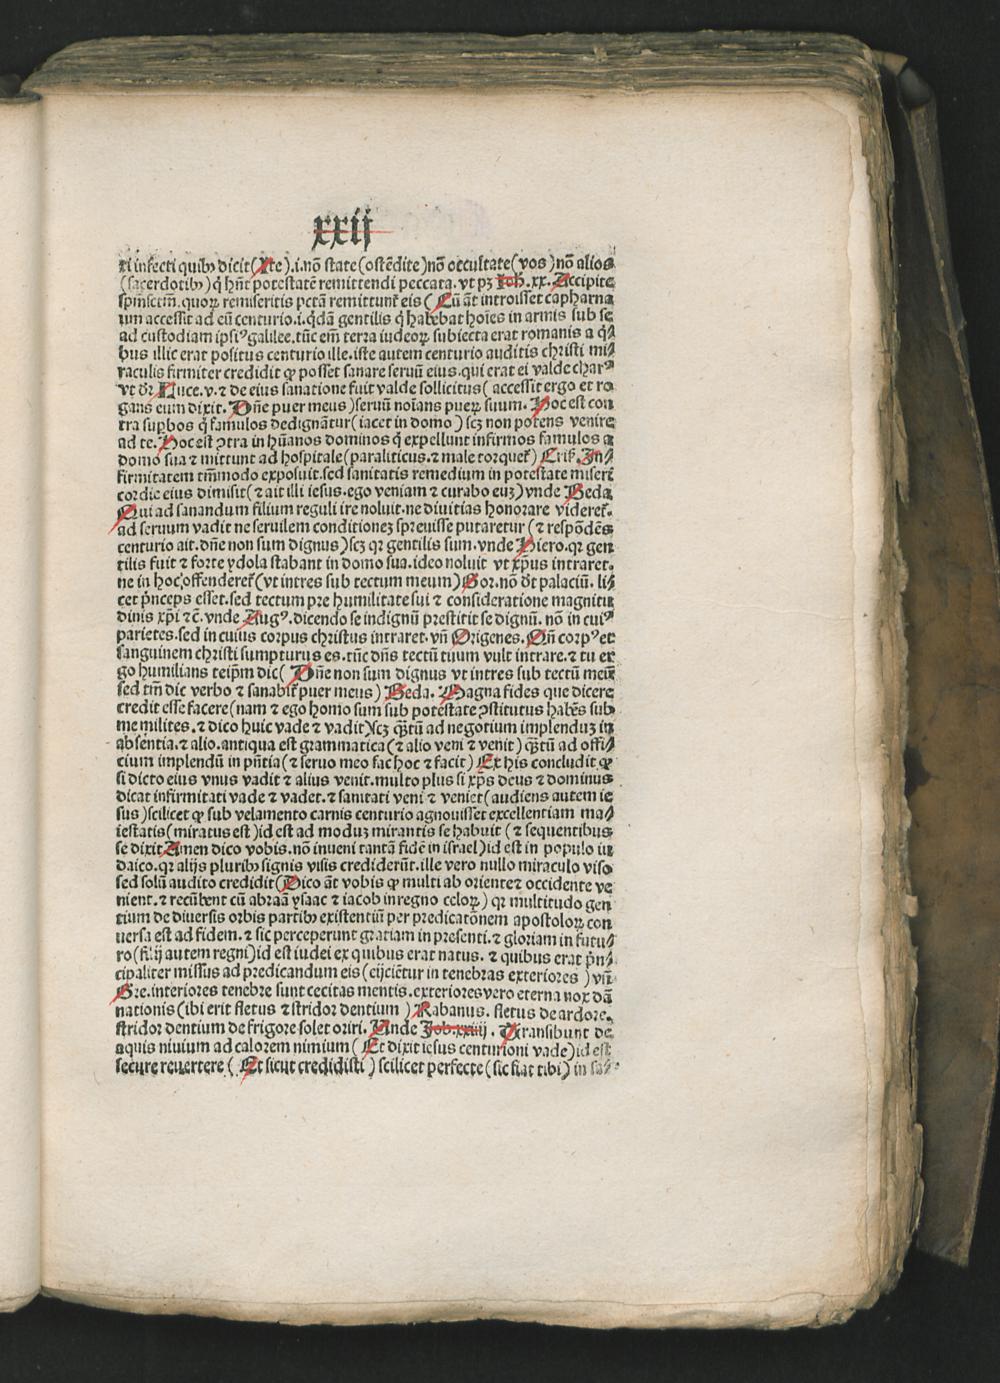 xxij
ti infecti quibꝫ dicit(Ite).i.nō state(ostēdite)nō occultate(vos)nō alios
(sacerdotibꝫ)q̄ hn̄t potestatē remittendi peccata. vt pꝫ Joh. xx. Accipite
spm̄sctm̄. quoꝝ remiseritis pctā remittunt̄ eis (Cū āt introisset capharna
um accessit ad eū centurio.i.qdā gentilis q̄ habebat hoīes in armis sub se
ad custodiam ipsiꝰ galilee. tūc em̄ terra iudeoꝝ subiecta erat romanis a q̄⸗
bus illic erat positus centurio ille. iste autem centurio auditis christi mi⸗
raculis firmiter credidit ꝙ posset sanare seruū eius. qui erat ei valde charꝰ
vt dr̄ Luce. v. ⁊ de eius sanatione fuit valde sollicitus( accessit ergo et ro
gans eum dixit. Dn̄e puer meus)seruū noīans pueꝝ suum. Hoc est con
tra supbos q̄ famulos dedignātur(iacet in domo)scꝫ non potens venire
ad te. Hoc est ↄtra in hūanos dominos q̄ expellunt infirmos famulos a
domo sua ⁊ mittunt ad hospitale(paraliticus. ⁊ male torquet̄) Cris̄. In⸗
firmitatem tm̄modo exposuit. sed sanitatis remedium in potestate miseri
cordie eius dimisit(⁊ ait illi iesus. ego veniam ⁊ curabo euꝫ)vnde Beda
Qui ad sanandum filium reguli ire noluit. ne diuitias honorare videret̄.
ad seruum vadit ne seruilem conditioneꝫ spreuisse putaretur (⁊ respōdēs
centurio ait. dn̄e non sum dignus)scꝫ qꝛ gentilis sum. vnde Hiero. qꝛ gen
tilis fuit ⁊ forte ydola stabant in domo sua. ideo noluit vt xp̄us intraret.
ne in hoc offenderet̄(vt intres sub tectum meum) Gor. nō dt̄ palaciū. li⸗
cet p̄nceps esset. sed tectum pre humilitate sui ⁊ consideratione magnitu
dinis xp̄i ⁊ c̄. vnde Augꝰ. dicendo se indignū prestitit se dignū. nō in cuiꝰ
parietes. sed in cuius corpus christus intraret. vn̄ Origenes. Qn̄ corpꝰ et
sanguinem christi sumpturus es. tūc dn̄s tectū tuum vult intrare. ⁊ tu er
go humilians teip̄m dic( Dn̄e non sum dignus vt intres sub tectū meū
sed tm̄ dic verbo ⁊ sanabit̄ puer meus) Beda. Magna fides que dicere
credit esse facere(nam ⁊ ego homo sum sub potestate ↄstitutus habēs sub
me milites. ⁊ dico huic vade ⁊ vadit)scꝫ qꝫtū ad negotium implenduꝫ in
absentia. ⁊ alio. antiqua est grammatica(⁊ alio veni ⁊ venit) qꝫtū ad offi⸗
cium implendū in pn̄tia(⁊ seruo meo fac hoc ⁊ facit) Ex his concludit ꝙ
si dicto eius vnus vadit ⁊ alius venit. multo plus si xp̄s deus ⁊ dominus
dicat infirmitati vade ⁊ vadet. ⁊ sanitati veni ⁊ veniet(audiens autem ie
sus)scilicet ꝙ sub velamento carnis centurio agnouisset excellentiam ma⸗
iestatis(miratus est)id est ad moduꝫ mirantis se habuit (⁊ sequentibus
se dixit Amen dico vobis. nō inueni tantā fidē in israel)id est in populo iu
daico. qꝛ alijs pluribꝫ signis visis crediderūt. ille vero nullo miraculo viso
sed solū audito credidit(Dico āt vobis ꝙ multi ab oriente ⁊ occidente ve
nient. ⁊ recūbent cū abraā ysaac ⁊ iacob in regno celoꝝ) qꝛ multitudo gen
tium de diuersis orbis partibꝫ existentiū per predicatōnem apostoloꝝ con
uersa est ad fidem. ⁊ sic perceperunt gratiam in presenti. ⁊ gloriam in futu⸗
ro(filij autem regni)id est iudei ex quibus erat natus. ⁊ quibus erat p̄n⸗
cipaliter missus ad predicandum eis(eijciētur in tenebras exteriores ) vn̄
Gre. interiores tenebre sunt cecitas mentis. exteriores vero eterna nox dā
nationis(ibi erit fletus ⁊ stridor dentium ) Rabanus. fletus de ardore.
stridor dentium de frigore solet oriri. Unde Job. xxiiij . Transibunt de
aquis niuium ad calorem nimium ( Et dixit iesus centurioni vade)id est
secure reuertere ( Et sicut credidisti ) scilicet perfecte(sic fiat tibi) in